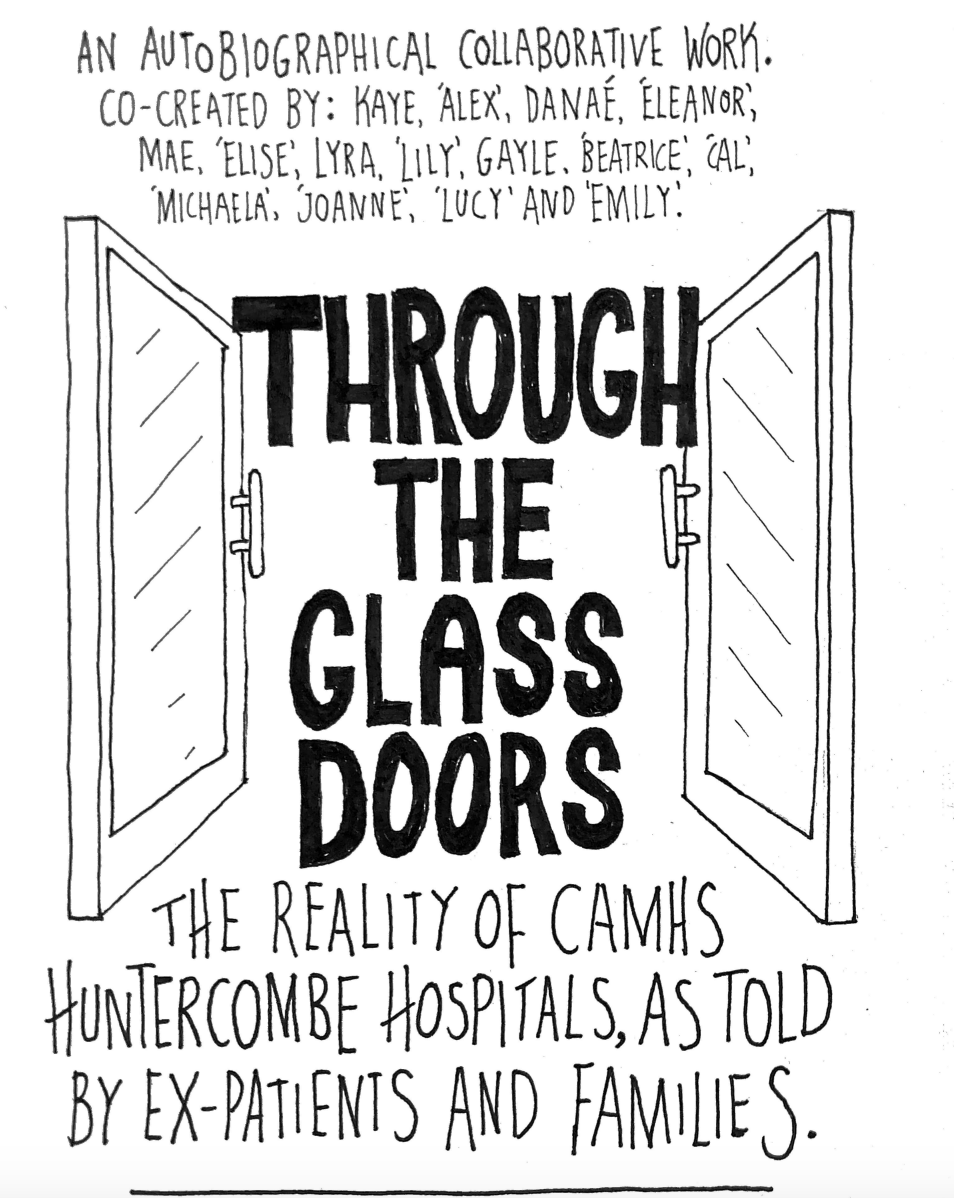 AN AUTOBIOGRAPHICAL COLLABORATIVE WORK.
CO-CREATED BY: KAYE, 'ALEX', DANAÉ, 'ELEANOR',
MAE, 'ELISE', LYRA, 'LILY', GAYLE. 'BEATRICE', 'CAL',
'MICHAELA', 'JOANNE', 'LUCY' AND 'EMILY'.
THROUGH
THE
GLASS
DOORS
THE REALITY OF CAMHS
HUNTERCOMBE HOSPITALS, AS TOLD
BY EX-PATIENTS AND FAMILIES.